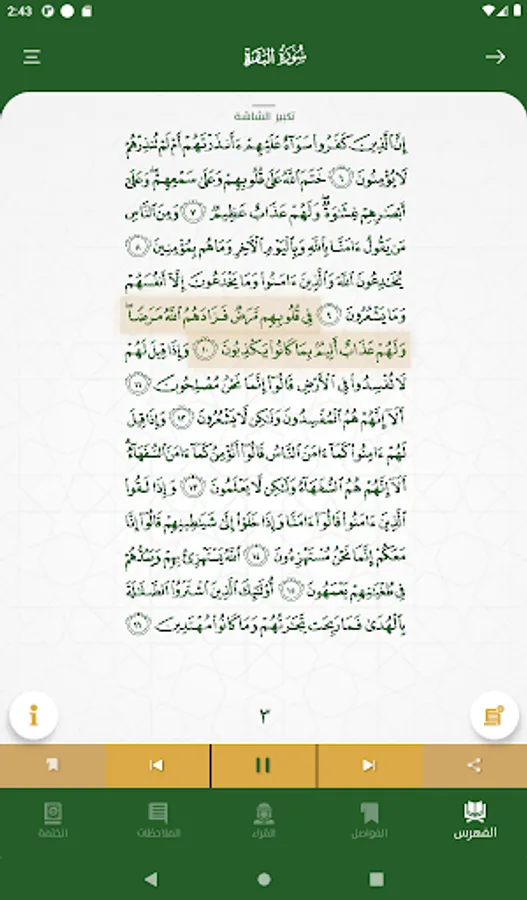 2:43
سُورَةُ البَقَرَةِ
تكبير الشاشة
إِنَّ ٱلَّذِينَ كَفَرُوا۟ سَوَآءٌ عَلَيْهِمْ ءَأَنذَرْتَهُمْ أَمْ لَمْ تُنذِرْهُمْ
لَا يُؤْمِنُونَ ٦ خَتَمَ ٱللَّهُ عَلَىٰ قُلُوبِهِمْ وَعَلَىٰ سَمْعِهِمْ ۖ وَعَلَىٰٓ
أَبْصَـٰرِهِمْ غِشَـٰوَةٌ ۖ وَلَهُمْ عَذَابٌ عَظِيمٌ ٧ وَمِنَ ٱلنَّاسِ
مَن يَقُولُ ءَامَنَّا بِٱللَّهِ وَبِٱلْيَوْمِ ٱلْـَٔاخِرِ وَمَا هُم بِمُؤْمِنِينَ ٨
يُخَـٰدِعُونَ ٱللَّهَ وَٱلَّذِينَ ءَامَنُوا۟ وَمَا يَخْدَعُونَ إِلَّآ أَنفُسَهُمْ
وَمَا يَشْعُرُونَ ٩ فِى قُلُوبِهِم مَّرَضٌ فَزَادَهُمُ ٱللَّهُ مَرَضًا ۖ
وَلَهُمْ عَذَابٌ أَلِيمٌۢ بِمَا كَانُوا۟ يَكْذِبُونَ ١٠ وَإِذَا قِيلَ لَهُمْ
لَا تُفْسِدُوا۟ فِى ٱلْأَرْضِ قَالُوٓا۟ إِنَّمَا نَحْنُ مُصْلِحُونَ ١١
أَلَآ إِنَّهُمْ هُمُ ٱلْمُفْسِدُونَ وَلَـٰكِن لَّا يَشْعُرُونَ ١٢ وَإِذَا قِيلَ
لَهُمْ ءَامِنُوا۟ كَمَآ ءَامَنَ ٱلنَّاسُ قَالُوٓا۟ أَنُؤْمِنُ كَمَآ ءَامَنَ ٱلسُّفَهَآءُ ۗ
أَلَآ إِنَّهُمْ هُمُ ٱلسُّفَهَآءُ وَلَـٰكِن لَّا يَعْلَمُونَ ١٣ وَإِذَا لَقُوا۟
ٱلَّذِينَ ءَامَنُوا۟ قَالُوٓا۟ ءَامَنَّا وَإِذَا خَلَوْا۟ إِلَىٰ شَيَـٰطِينِهِمْ قَالُوٓا۟ إِنَّا
مَعَكُمْ إِنَّمَا نَحْنُ مُسْتَهْزِءُونَ ١٤ ٱللَّهُ يَسْتَهْزِئُ بِهِمْ وَيَمُدُّهُمْ
فِى طُغْيَـٰنِهِمْ يَعْمَهُونَ ١٥ أُو۟لَـٰٓئِكَ ٱلَّذِينَ ٱشْتَرَوُا۟ ٱلضَّلَـٰلَةَ
بِٱلْهُدَىٰ فَمَا رَبِحَت تِّجَـٰرَتُهُمْ وَمَا كَانُوا۟ مُهْتَدِينَ ١٦
٣
الفهرس
الفواصل
القراء
الملاحظات
الختمة